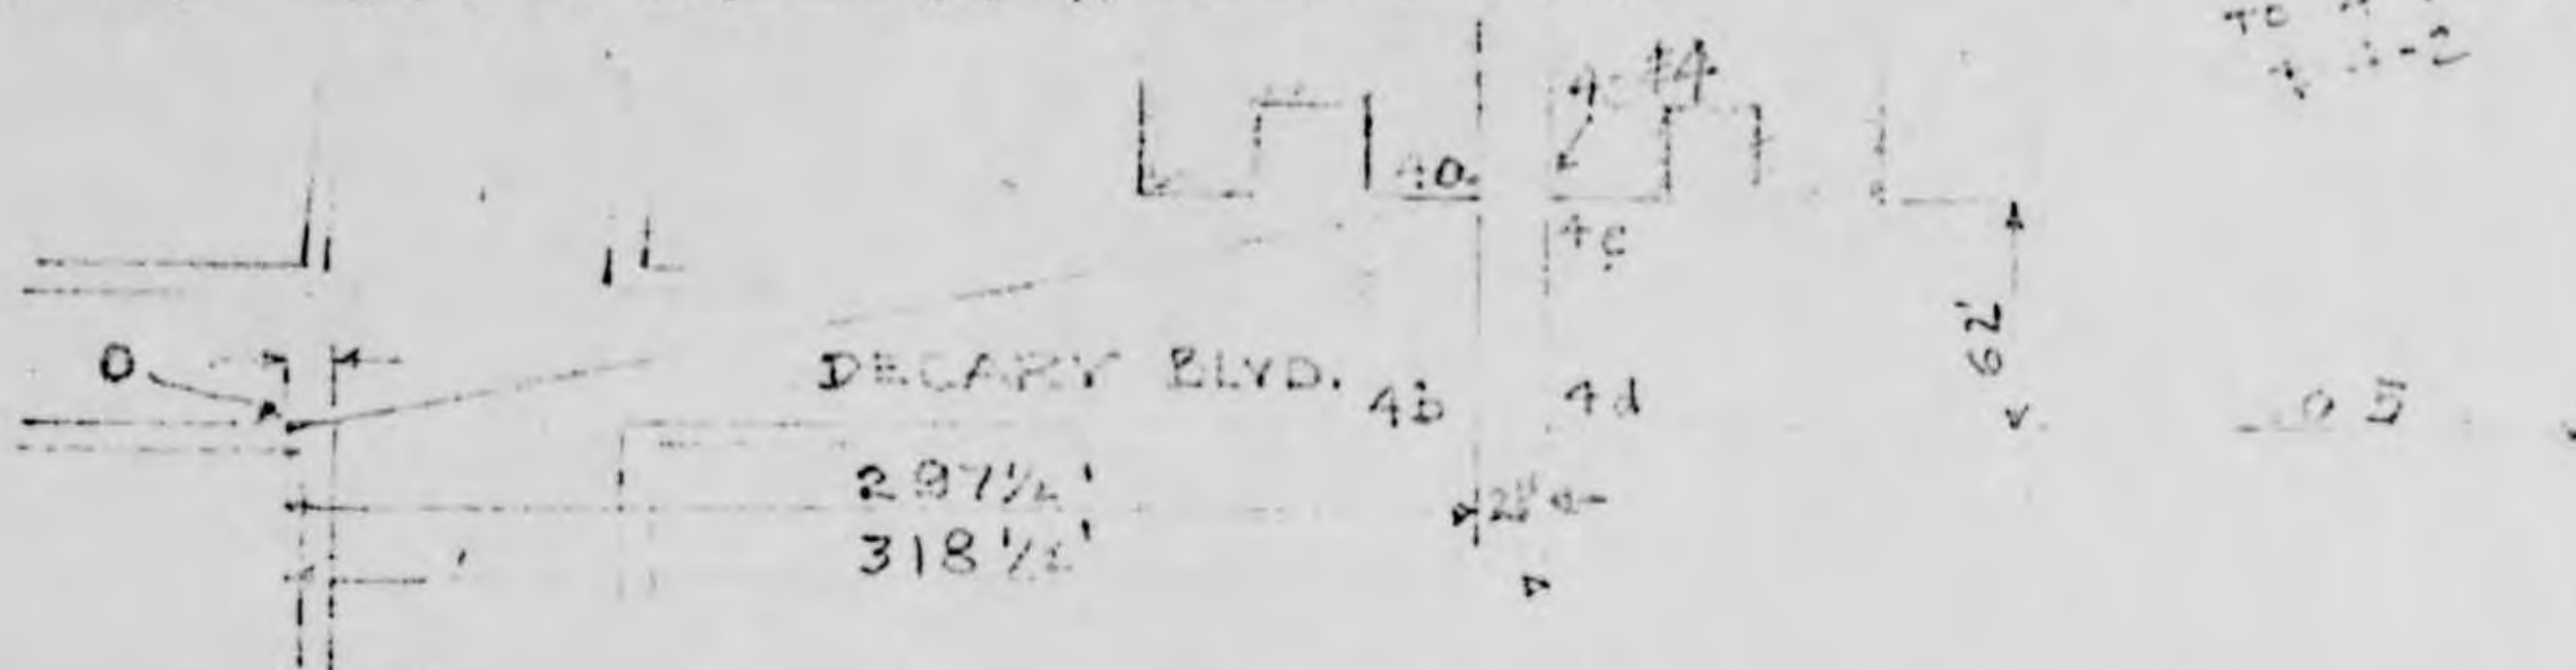 #4
4a
4c
62'
O
DECARY BLVD.
4b
4d
297½'
21'
318½'